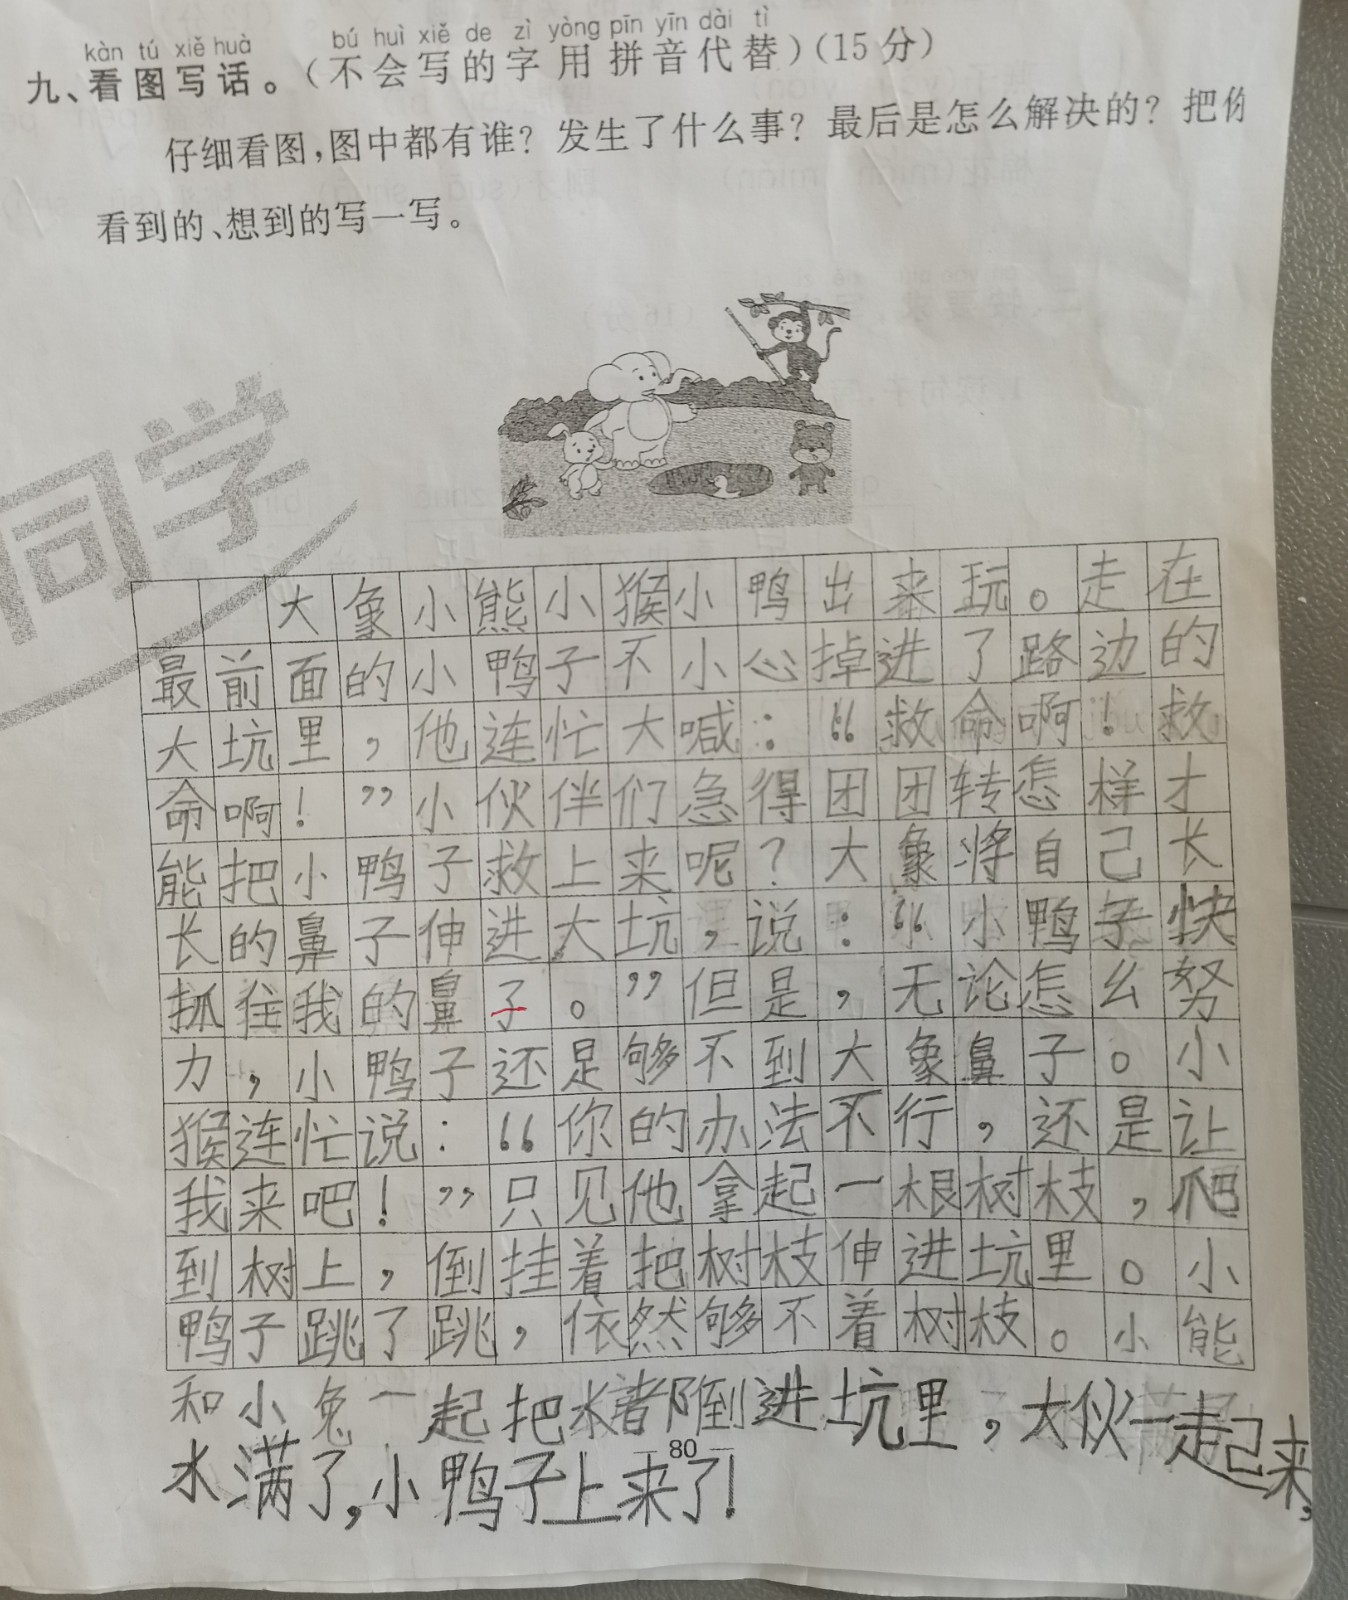 kàn tú xiě huà bú huì xiě de zì yòng pīn yīn dài tì
九、看图写话。(不会写的字用拼音代替)(15分)
仔细看图,图中都有谁?发生了什么事?最后是怎么解决的?把你
看到的、想到的写一写。
同学
大象小熊小猴小鸭出来玩。走在
最前面的小鸭子不小心掉进了路边的
大坑里,他连忙大喊:“救命啊!救
命啊!”小伙伴们急得团团转怎样才
能把小鸭子救上来呢?大象将自己长
长的鼻子伸进大坑,说:“小鸭子快
抓住我的鼻子。”但是,无论怎么努
力,小鸭子还是够不到大象鼻子。小
猴连忙说:“你的办法不行,还是让
我来吧!”只见他拿起一根树枝,爬
到树上,倒挂着把树枝伸进坑里。小
鸭子跳了跳,依然够不着树枝。小能
和小兔一起把水倒进坑里,大伙一起来,
水满了,小鸭子上来了!
80